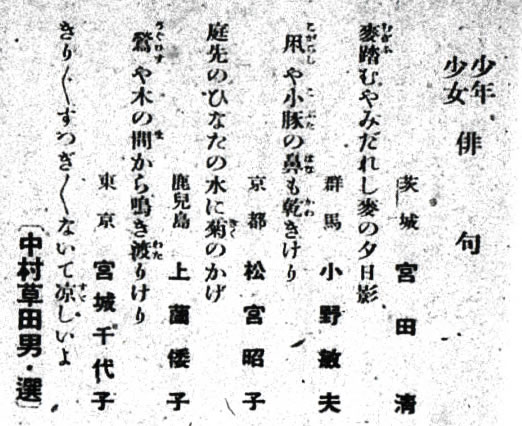 少年少女 俳句
茨城 宮田 清
麥踏むやみだれし麥の夕日影
群馬 小野敏夫
凩や小豚の鼻も乾きけり
京都 松宮昭子
庭先のひなたの水に菊のかげ
鹿兒島 上薗倭子
鶯や木の間から鳴き渡りけり
東京 宮城千代子
きり〳〵すつぎ〳〵ないて凉しいよ
〔中村草田男・選〕